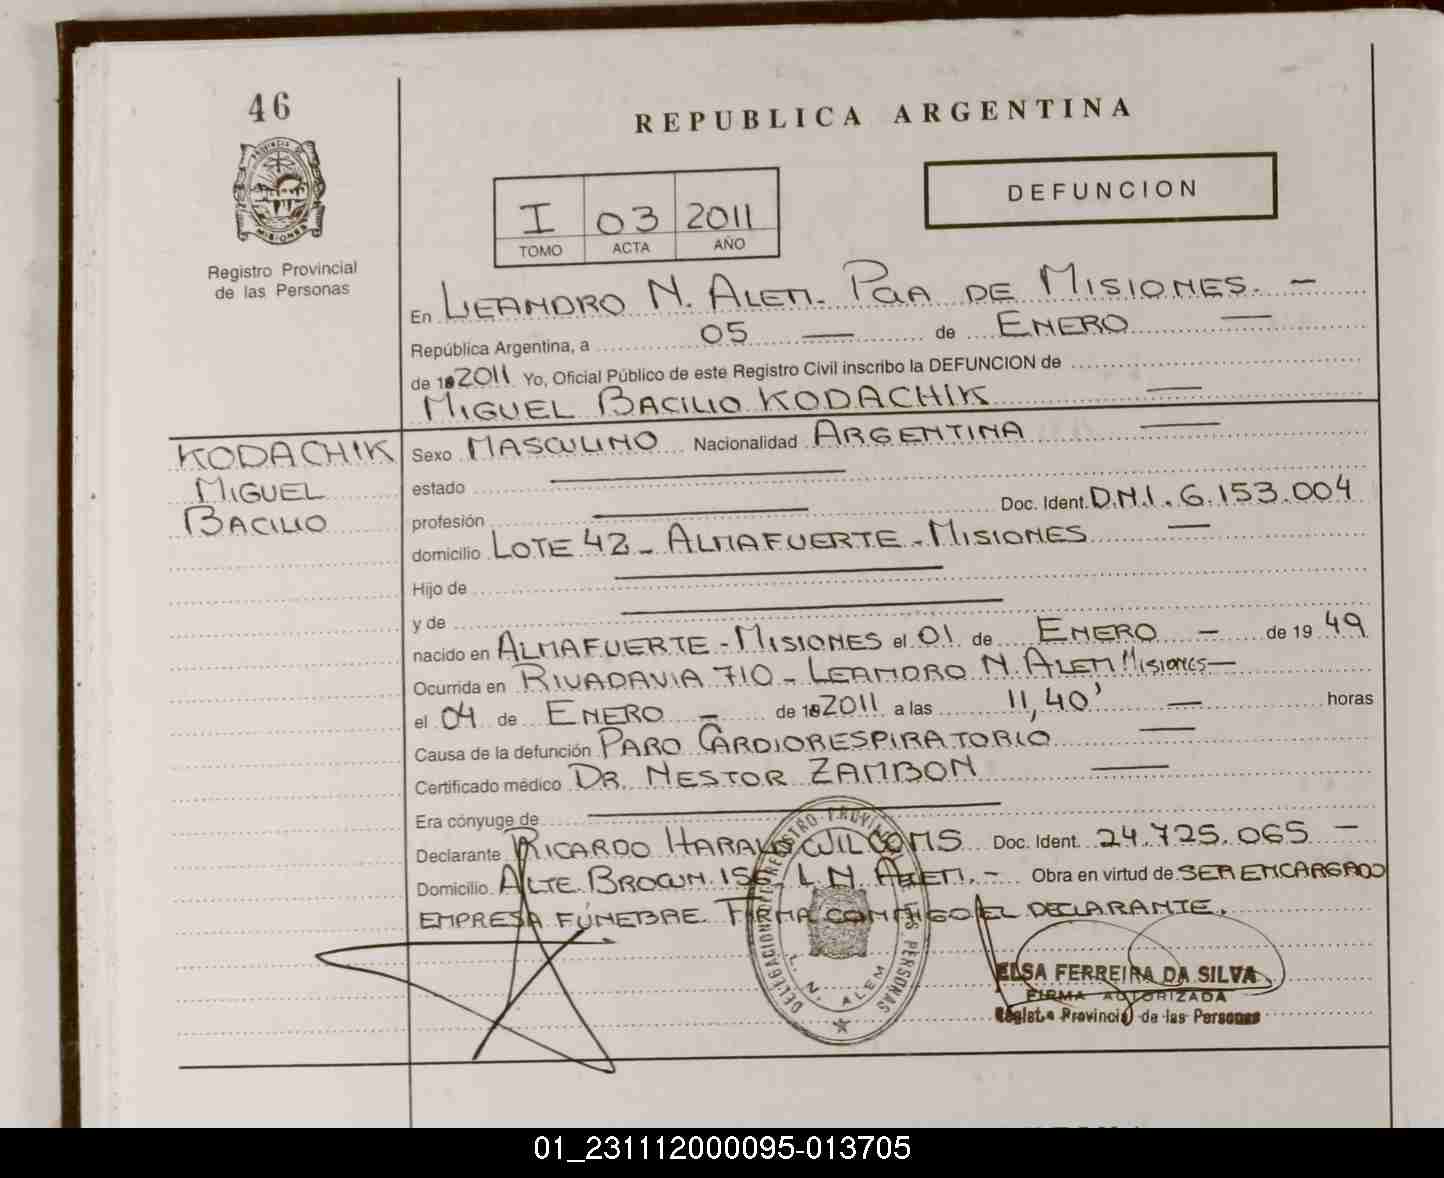 46
REPUBLICA ARGENTINA
PROVINCIA DE MISIONES
Registro Provincial
de las Personas
I 03 2011
TOMO ACTA AÑO
DEFUNCION
En LEANDRO N. ALEM. Pcia DE MISIONES. —
República Argentina, a 05 — de ENERO —
de 2011 Yo, Oficial Público de este Registro Civil inscribo la DEFUNCION de
MIGUEL BACILIO KODACHIK —
KODACHIK
MIGUEL
BACILIO
Sexo MASCULINO Nacionalidad ARGENTINA —
estado —
profesión — Doc. Ident. D.N.I. 6.153.004
domicilio LOTE 42 - ALMAFUERTE - MISIONES —
Hijo de —
y de —
nacido en ALMAFUERTE - MISIONES el 01 de ENERO — de 19 49
Ocurrida en RIVADAVIA 710 - LEANDRO N. ALEM MISIONES —
el 04 de ENERO — de 2011 a las 11,40' — horas
Causa de la defunción PARO CARDIORESPIRATORIO —
Certificado médico DR. NESTOR ZAMBON —
Era cónyuge de —
Declarante RICARDO HARALD Doc. Ident. 24.725.065 —
Domicilio ALTE. BROWN 156, L.N. ALEM. - Obra en virtud de SER ENCARGADO
EMPRESA FÚNEBRE. FIRMA CONMIGO EL DECLARANTE.
DELEGACION DEL REGISTRO PROVINCIAL DE LAS PERSONAS
L. N. ALEM
ELSA FERREIRA DA SILVA
FIRMA AUTORIZADA
Registro Provincial de las Personas
01_231112000095-013705